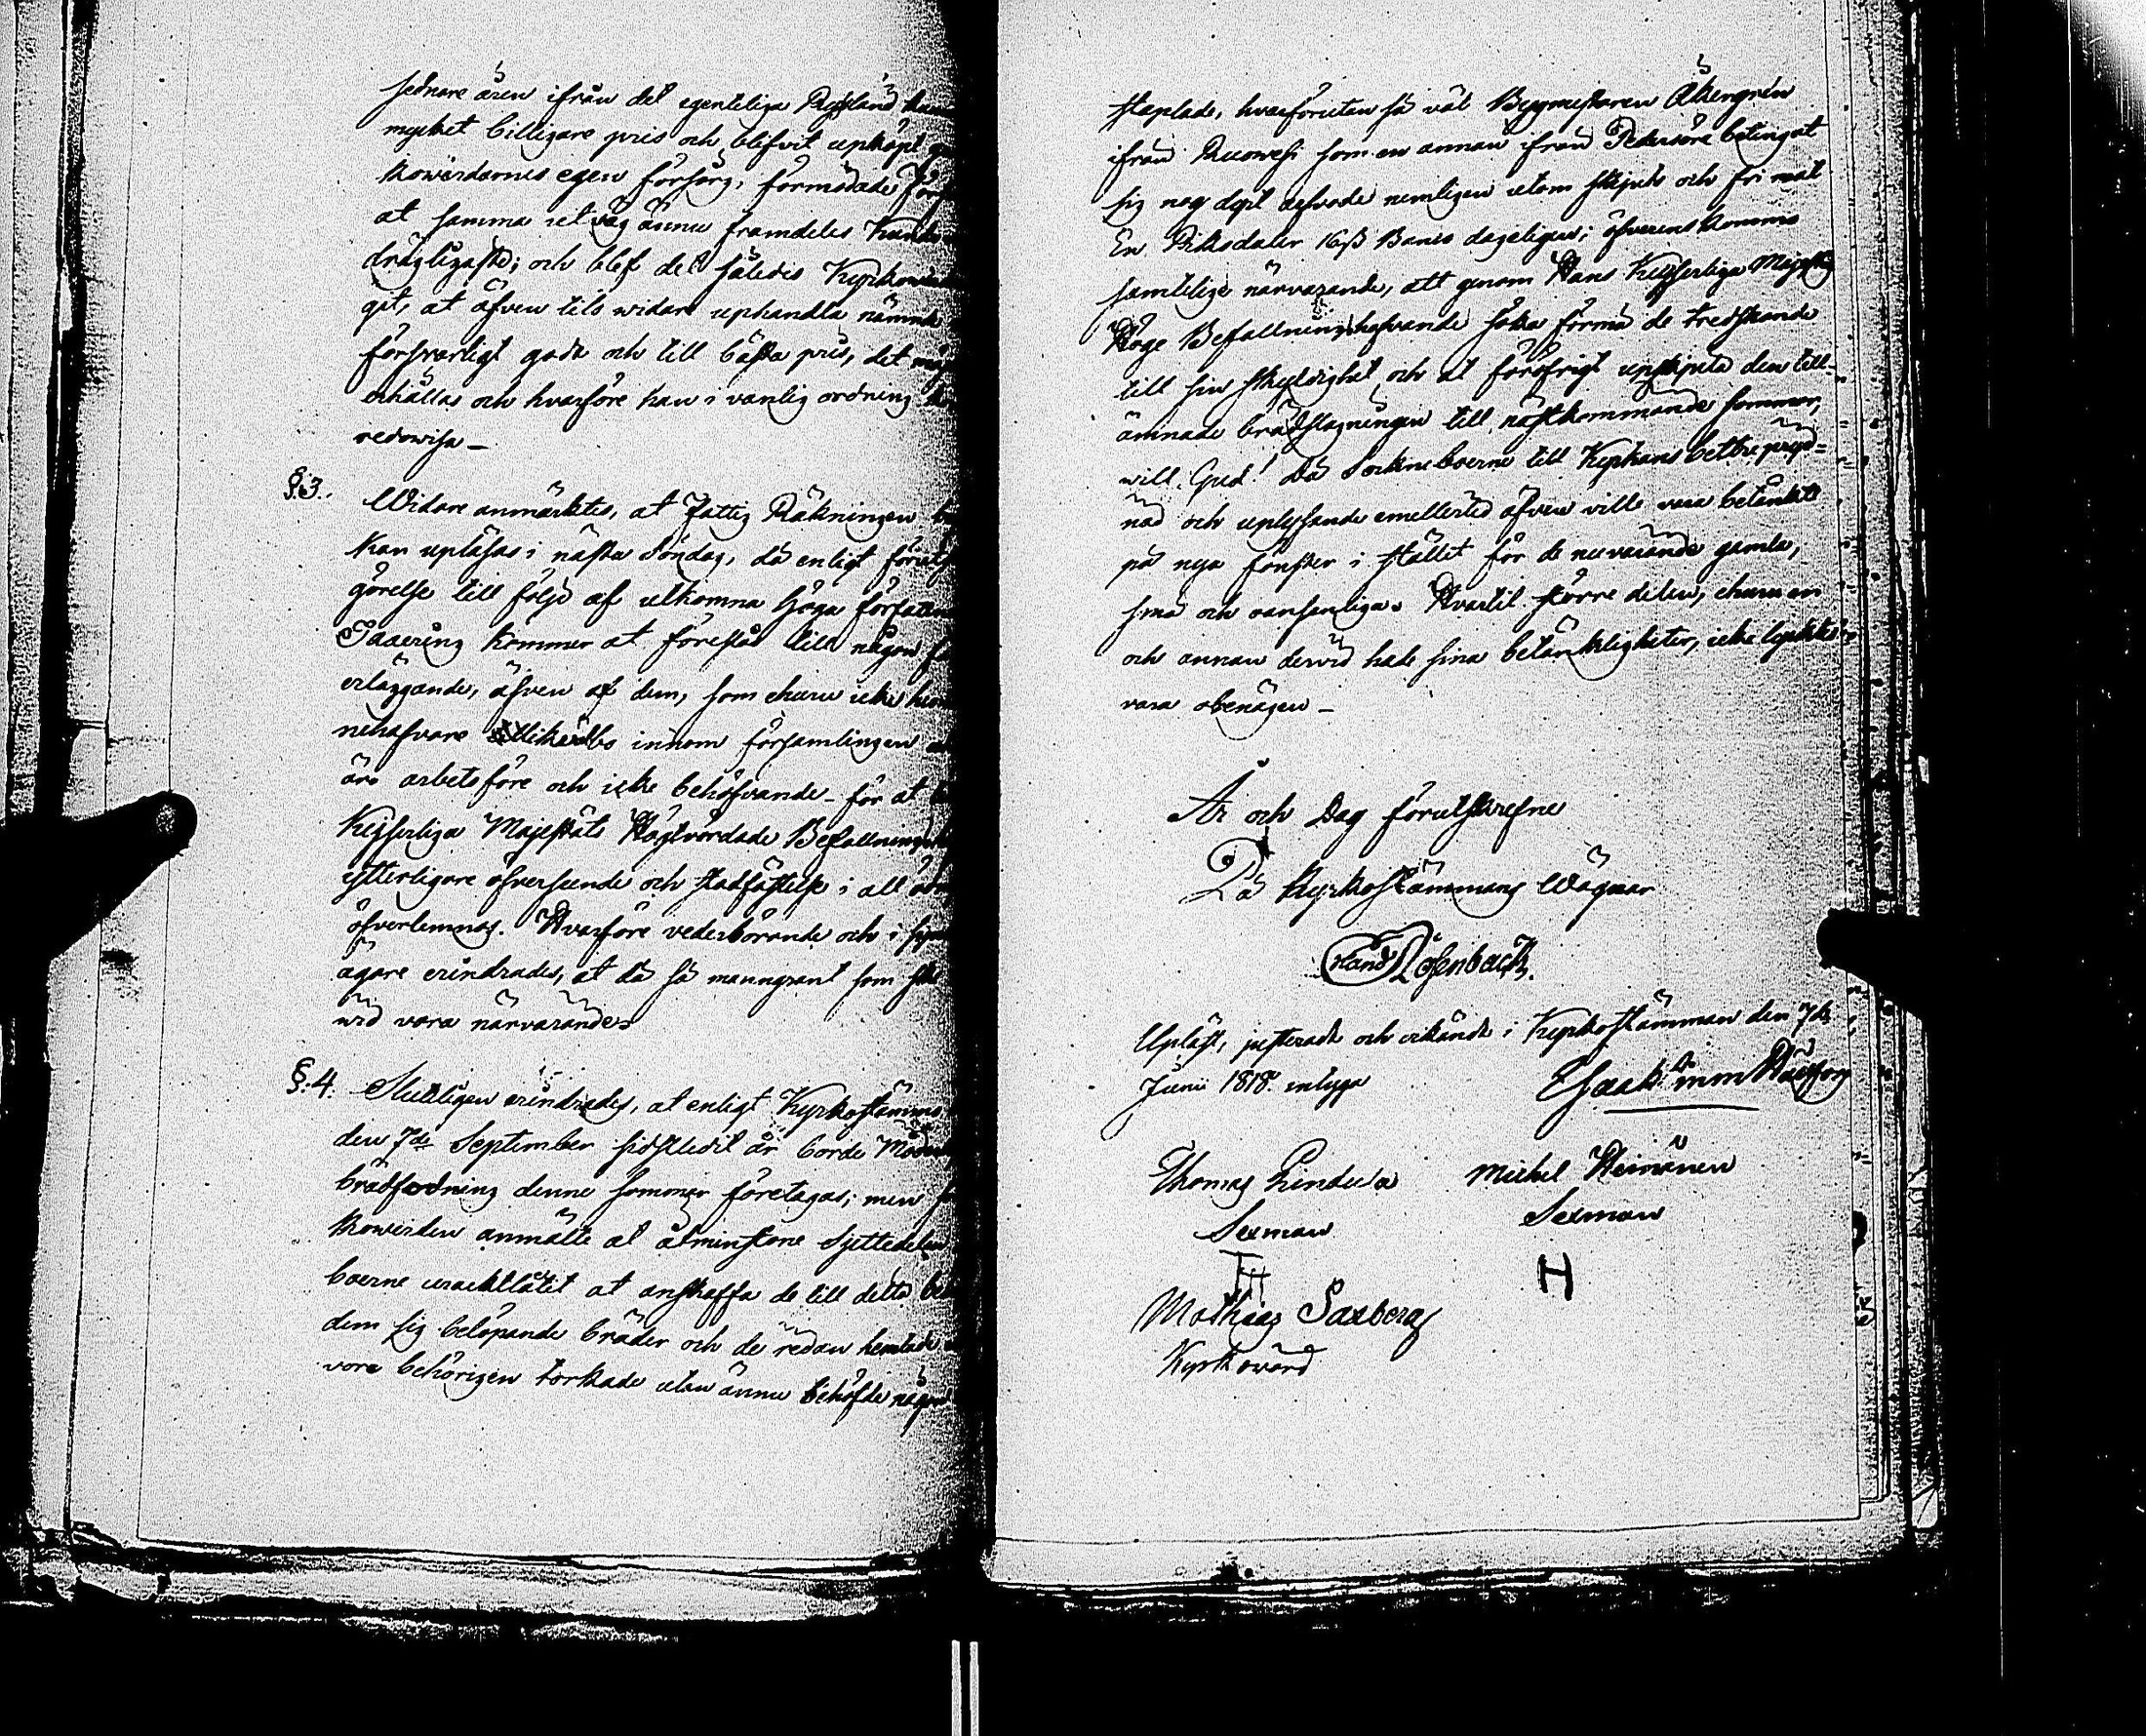 sednare åren ifrån det egenteliga Ryssland
mycket billigare pris och blifvit upköpt
kowärdarnes egen försorg, förmodades
at samma utväg ännu framdeles kunde
drägligaste; och blef det således Kyrkowär
git, at äfven tils widare uphandla nämnde
försvarligt godt och till bästa pris, det
erhållas och hvarföre han i vanlig ordning
redowisa_
§.3. Widare anmärktes, at Fattig Räkningen
kan upläsas i nästa Söndag, då enligt
görelse till följd af utkomna höga författn
Taxering kommer at förestås till någon
erläggande, äfven af dem, som ehuru icke
nehafvare allikaväl bo innom församlingen
äro arbetsföre och icke behöfvande_ för at
Kejserliga Majestäts Högtvördade Befallnings
ytterligare öfverseende och stadfästelse i all
öfverlemnas. Hvarföre vederbörande och i
ägare erindrades, at då så manngrant som
wid vara närvarande_
§.4. Sluteligen erindrades, at enligt Kyrkostämmo
den 7de September sidstledit år borde
brädfodning denne sommar företagas; men
kowärden anmälte at åtminstone Sjettedelen
boerne uracktlåtit at anskaffa de till detta
dem sig belöpande bräder och de redan hemtade
vore behörigen torkade utan ännu behöfde någon
staplade, hvarförutan så väl Byggmästaren Åkergrén
ifrån Ruowesi som en annan ifrån Pedersöre betingat
sig nog dyrt arfvode nemligen utom skjuts och fri mat
En Riksdaler 16ß Banco dageligen; öfverenskommo
samtelige närvarande, att genom Hans Kejserliga Majestäts
Höge Befallningshafvande söka förmå de tredskande
till sin skyldighet och at föröfrigt upskjuta den till-
ämnade brädslagningen till nästkommande sommar,
will Gud! Då Sockneboerne till Kyrkans bettre pryd=
nad och uplysande emellertid äfven wille vara betänkte
på nya fönster i stället för de nuvarande gamla,
små och oansenliga. Hvartil större delen, ehuru en
och annan dervid hade sina betänkligheter, icke lyckte
vara obenägen_
År och Dag förutskrefne
På Kyrkostämmans Wägnar
Löfenback.
Upläst, justeradt och erkändt i Kyrkostämman den 7de
Junii 1818. intyga
Thomas Rindula Michel Heinänen
Sexman Sexman
H
Mathias Saxberg
Kyrkovärd